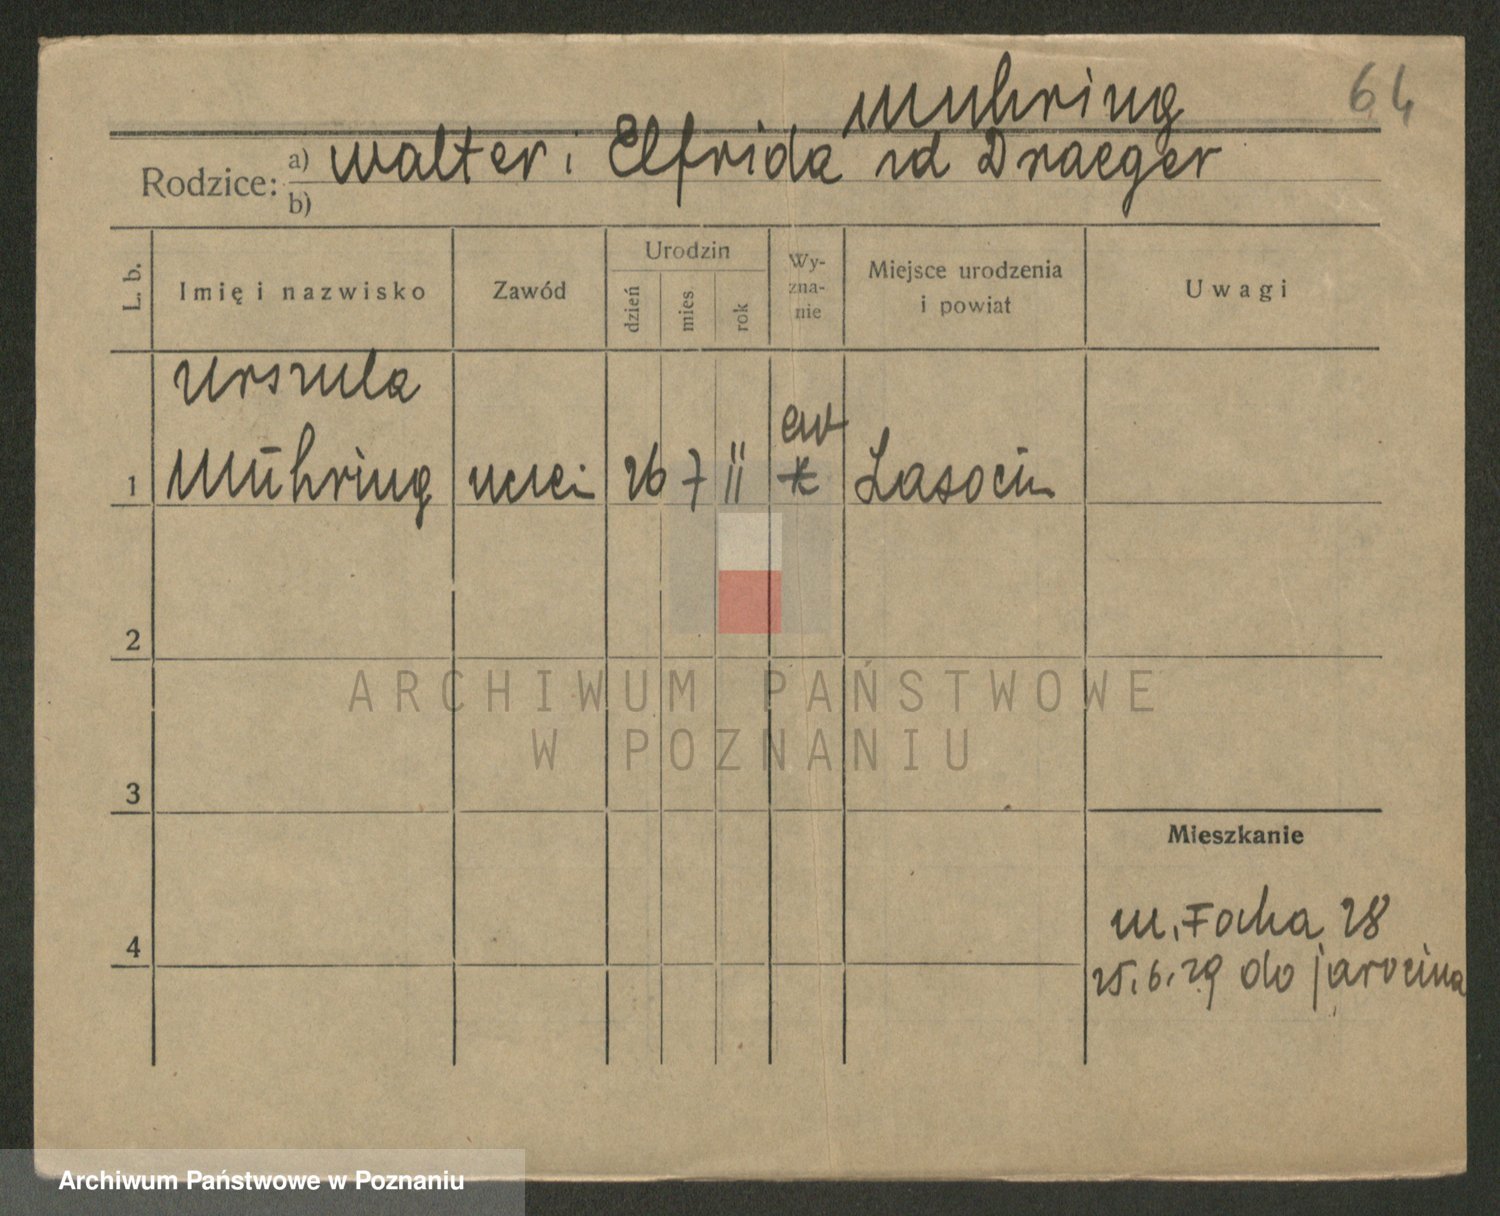 Muhring
64
Rodzice: a) Walter i Elfrida zd Draeger
b)
L. b.
Imię i nazwisko
Zawód
Urodzin
dzień
mies
rok
Wy-
zna-
nie
Miejsce urodzenia
i powiat
Uwagi
Urszula
ew
1 Mühring uczeń 26 7 11 k Lasocin
2
ARCHIWUM PAŃSTWOWE
W POZNANIU
3
Mieszkanie
m. Focha 28
4
25.6.29 do jarocina
Archiwum Państwowe w Poznaniu